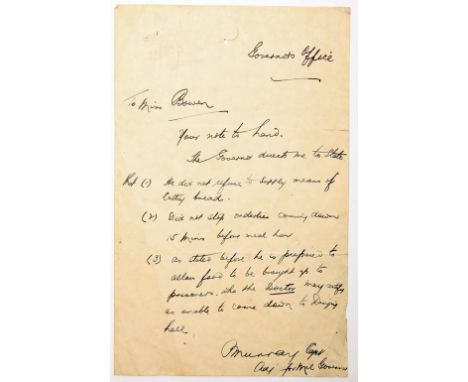 Governors Office
To Miss Bowen
Your note to hand.
The Governor directs me to state
that (1) He did not refuse to supply means of
cutting bread.
(2) Did not stop orderlies coming down
15 mins before meal hour
(3) As stated before he is prepared to
allow food to be brought up to
prisoners who the Doctor may certify
as unable to come down to Dining
hall.
Murray Capt
Adj for Mil Governor